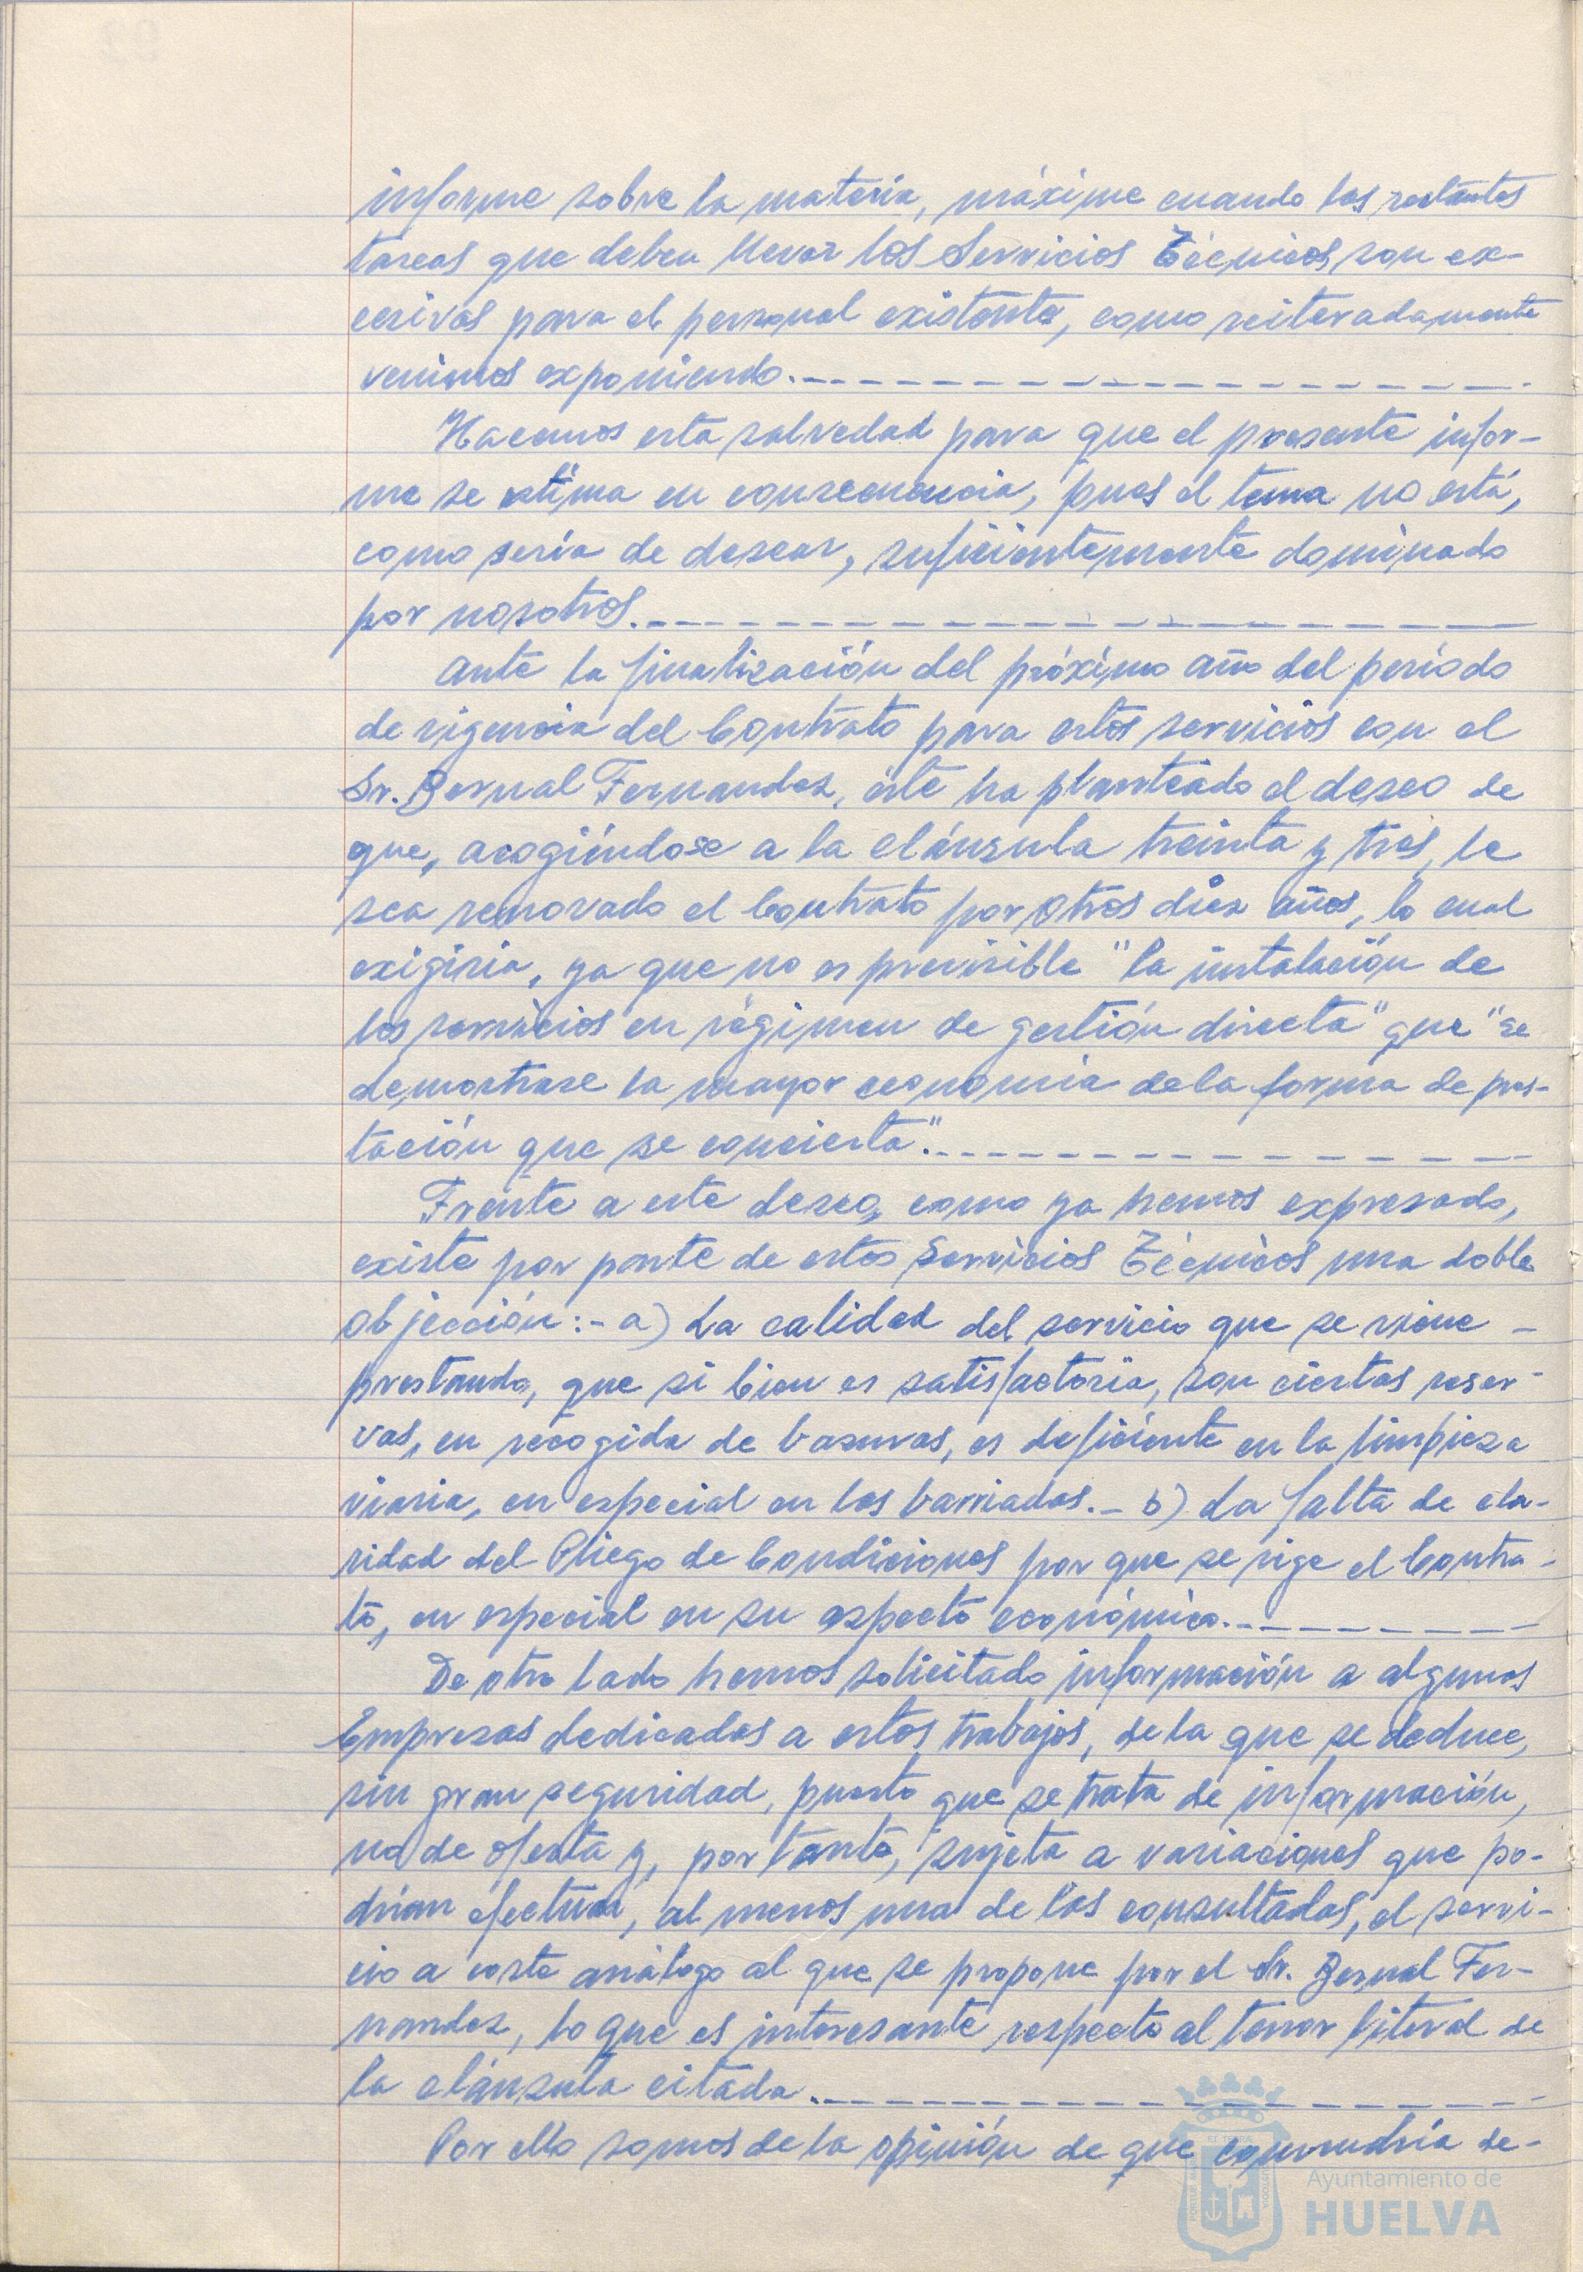 informe sobre la materia, máxime cuando las restantes
tareas que deben llevar los Servicios Técnicos son ex-
cesivas para el personal existente, como reiteradamente
venimos exponiendo.
Hacemos esta salvedad para que el presente infor-
me se estima en consecuencia, pues el tema no está,
como sería de desear, suficientemente dominado
por nosotros.
Ante la finalización del próximo año del período
de vigencia del Contrato para estos servicios con el
Sr. Bernal Fernandez, éste ha planteado el deseo de
que, acogiéndose a la cláusula treinta y tres, le
sea renovado el Contrato por otros diez años, lo cual
exigiría, ya que no es previsible "la instalación de
los servicios en régimen de gestión directa" que "se
demostrase la mayor economía de la forma de pres-
tación que se concierta".
Frente a este deseo, como ya hemos expresado,
existe por parte de estos Servicios Técnicos una doble
objección:- a) La calidad del servicio que se viene -
prestando, que si bien es satisfactoria, son ciertas reser-
vas, en recogida de basuras, es deficiente en la limpieza
viaria, en especial en las barriadas.- b) La falta de cla-
ridad del Pliego de Condiciones por que se rige el Contra-
to, en especial en su aspecto económico.
De otro lado hemos solicitado información a algunas
Empresas dedicadas a estos trabajos, de la que se deduce,
sin gran seguridad, puesto que se trata de información,
no de oferta y, por tanto, sujeta a variaciones que po-
drían efectuar, al menos una de las consultadas, el servi-
cio a coste análogo al que se propone por el Sr. Bernal Fer-
nandez, lo que es interesante respecto al tenor literal de
la cláusula citada.
Por ello somos de la opinión de que convendría de-
Ayuntamiento de
HUELVA